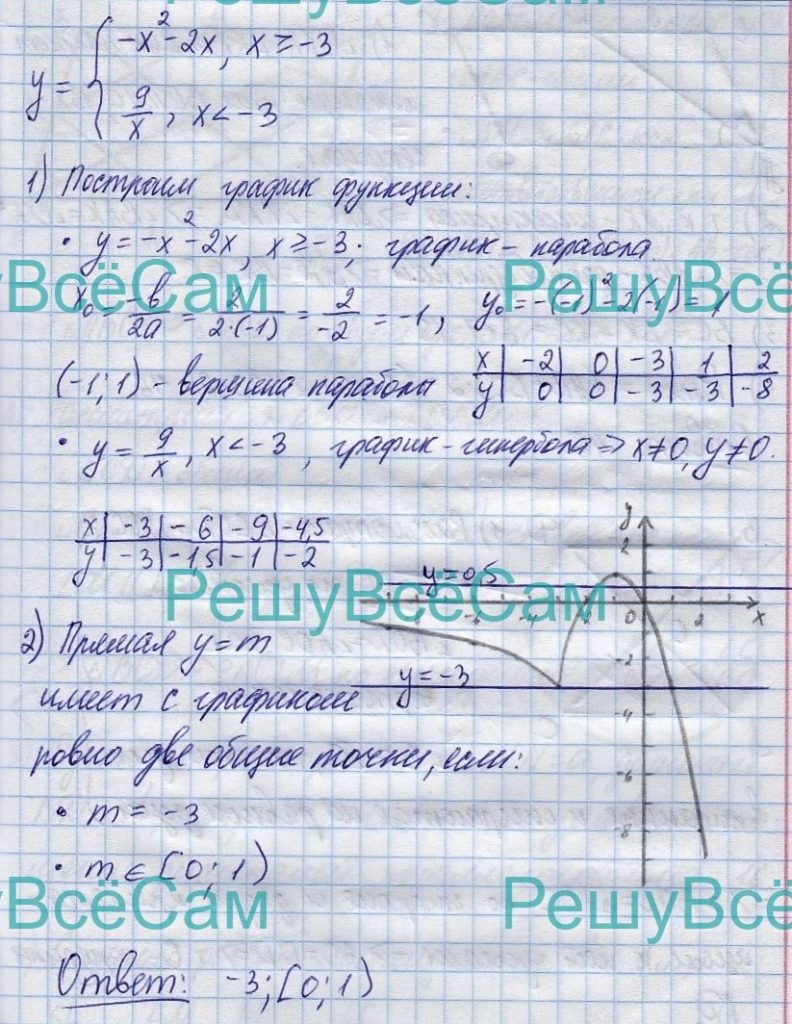 РешуВсёСам
y = { -x² - 2x, x ≥ -3
9/x, x < -3
1) Построим график функции:
• y = -x² - 2x, x ≥ -3; график - парабола.
уВсёСам РешуВсё
x₀ = -в/2a = 2/2·(-1) = 2/-2 = -1, y₀ = -(-1)² - 2(-1) = 1
(-1; 1) - вершина параболы
x | -2 | 0 | -3 | 1 | 2
y | 0 | 0 | -3 | -3 | -8
• y = 9/x, x < -3, график - гипербола ⇒ x ≠ 0, y ≠ 0.
x | -3 | -6 | -9 | -4,5
y | -3 | -1,5 | -1 | -2
y
2
y = 0,5
РешуВсёСам
-8 -6 -4 -2 0 2 x
2) Прямая y = m
-2
имеет с графиком
y = -3
-4
ровно две общие точки, если:
-6
• m = -3
-8
• m ∈ [0; 1)
уВсёСам РешуВсё
Ответ: -3; [0; 1)